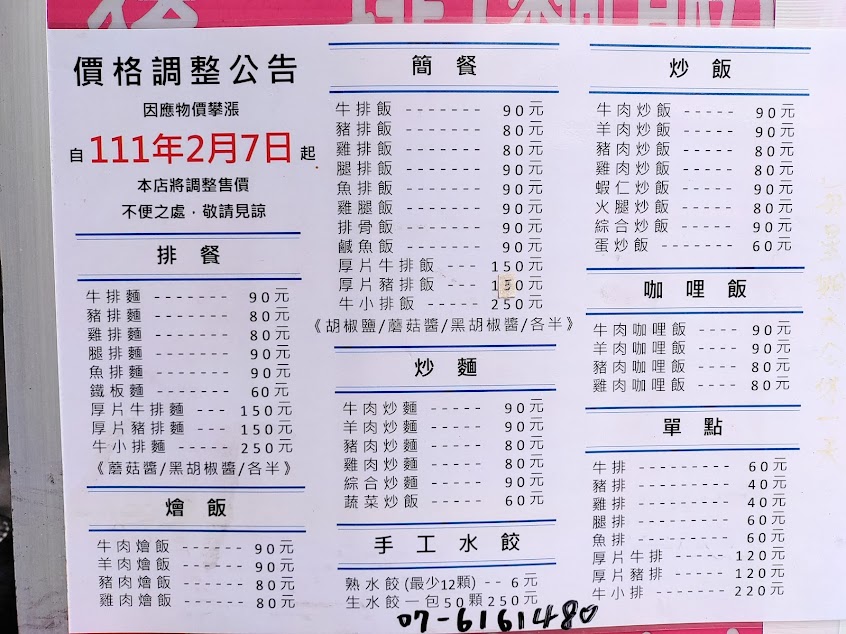 價格調整公告
因應物價攀漲
自 111年2月7日 起
本店將調整售價
不便之處，敬請見諒
排 餐
牛排麵 ------- 90元
豬排麵 ------- 80元
雞排麵 ------- 80元
腿排麵 ------- 90元
魚排麵 ------- 90元
鐵板麵 ------- 60元
厚片牛排麵 --- 150元
厚片豬排麵 --- 150元
牛小排麵 ----- 250元
《蘑菇醬/黑胡椒醬/各半》
燴 飯
牛肉燴飯 ------ 90元
羊肉燴飯 ------ 90元
豬肉燴飯 ------ 80元
雞肉燴飯 ------ 80元
簡 餐
牛排飯 ------- 90元
豬排飯 ------- 80元
雞排飯 ------- 80元
腿排飯 ------- 90元
魚排飯 ------- 90元
雞腿飯 ------- 90元
排骨飯 ------- 90元
鹹魚飯 ------- 90元
厚片牛排飯 --- 150元
厚片豬排飯 --- 150元
牛小排飯 ----- 250元
《胡椒鹽/蘑菇醬/黑胡椒醬/各半》
炒 麵
牛肉炒麵 ----- 90元
羊肉炒麵 ----- 90元
豬肉炒麵 ----- 80元
雞肉炒麵 ----- 80元
綜合炒麵 ----- 90元
蔬菜炒飯 ----- 60元
手 工 水 餃
熟水餃(最少12顆) -- 6元
生水餃一包50顆250元
07-6191480
炒 飯
牛肉炒飯 ----- 90元
羊肉炒飯 ----- 90元
豬肉炒飯 ----- 80元
雞肉炒飯 ----- 80元
蝦仁炒飯 ----- 90元
火腿炒飯 ----- 80元
綜合炒飯 ----- 90元
蛋炒飯 ------- 60元
咖 哩 飯
牛肉咖哩飯 ---- 90元
羊肉咖哩飯 ---- 90元
豬肉咖哩飯 ---- 80元
雞肉咖哩飯 ---- 80元
單 點
牛排 --------- 60元
豬排 --------- 40元
雞排 --------- 40元
腿排 --------- 60元
魚排 --------- 60元
厚片牛排 ----- 120元
厚片豬排 ----- 120元
牛小排 ------- 220元